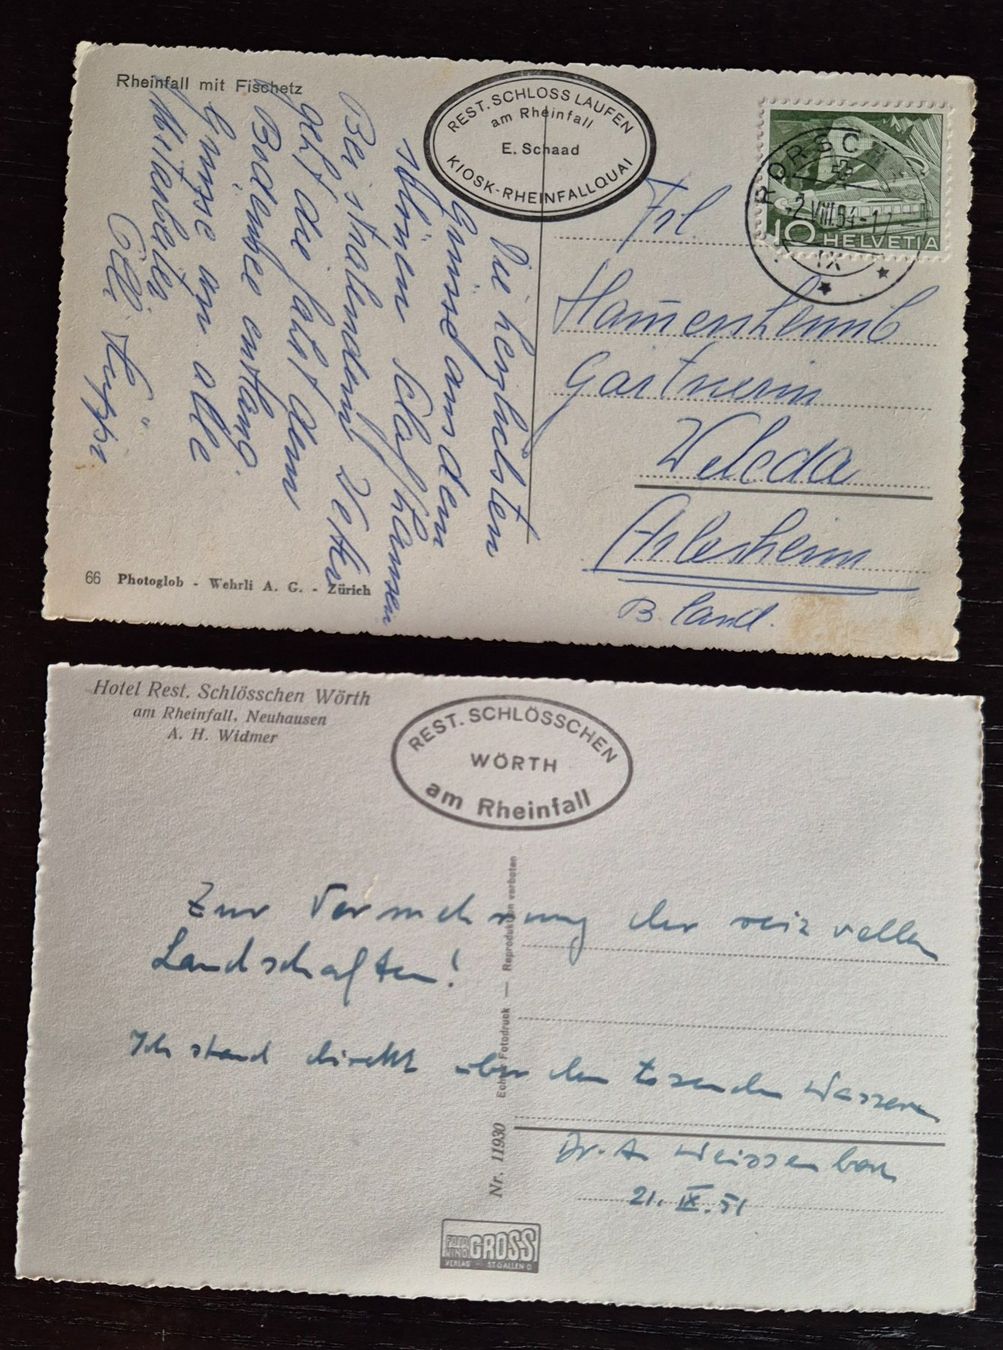 Rheinfall mit Fischetz
REST. SCHLOSS LAUFEN
am Rheinfall
E. Schaad
KIOSK-RHEINFALLQUAI
RORSCH
2.VIII.51-17
IX
10 HELVETIA
Die herzlichsten
Grüsse aus dem
schönen Schaffhausen
Bei strahlendem Wetter
geht die Fahrt dem
Bodensee entlang.
Grüsse an alle
Mitarbeiter
Frl.
Gärtnerin
Weleda
Arlesheim
B. land.
66 Photoglob - Wehrli A. G. - Zürich
Hotel Rest. Schlösschen Wörth
am Rheinfall, Neuhausen
A. H. Widmer
REST. SCHLÖSSCHEN
WÖRTH
am Rheinfall
Zur Vermehrung der reizvollen
Landschaften!
Ich stand direkt über den tosenden Wassern
Dr. A. Weissenbach
21. IX. 51
Nr. 11930 Echt Fotodruck — Reproduktion verboten
FOTO
KINO
GROSS
VERLAG - ST. GALLEN O